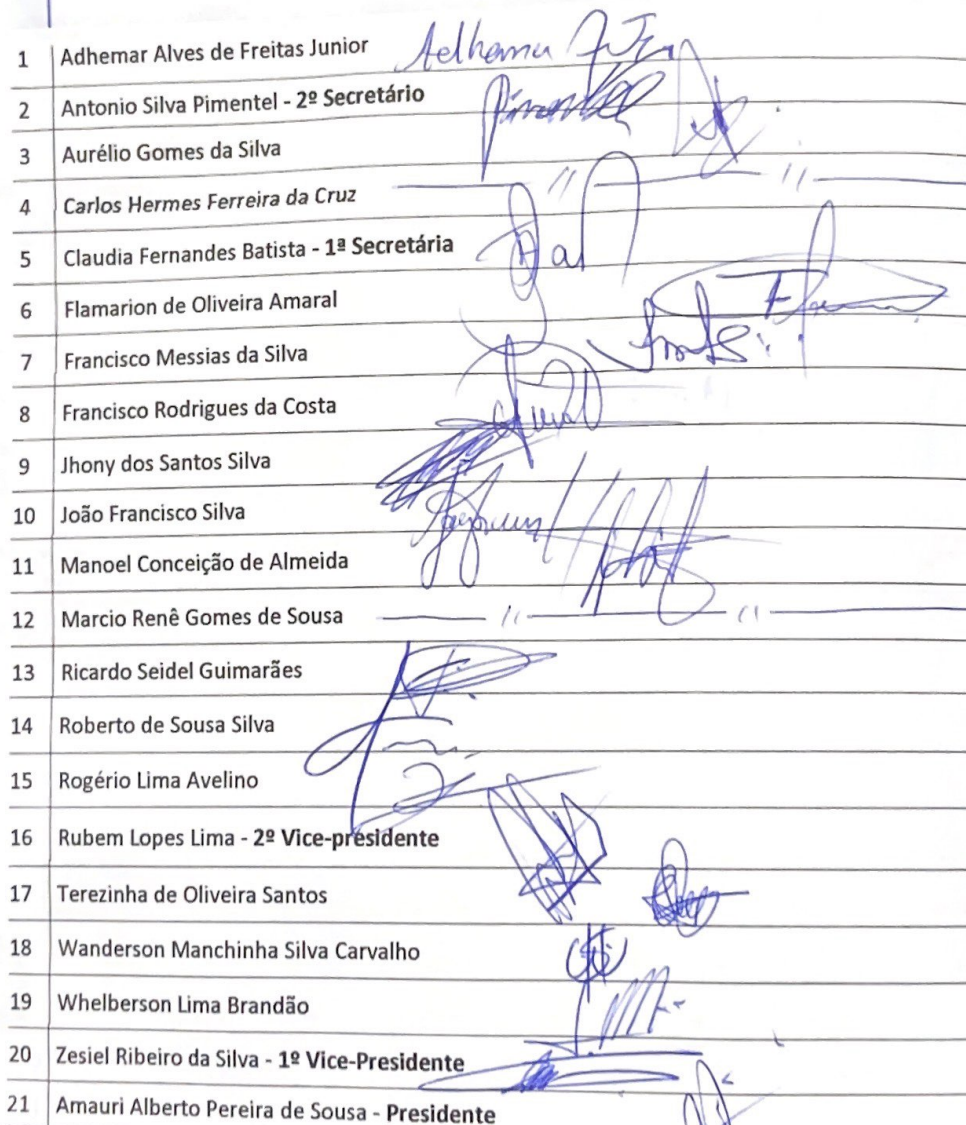 1 Adhemar Alves de Freitas Junior Adhemar
2 Antonio Silva Pimentel - 2º Secretário Pimentel
3 Aurélio Gomes da Silva
4 Carlos Hermes Ferreira da Cruz
5 Claudia Fernandes Batista - 1ª Secretária
6 Flamarion de Oliveira Amaral
7 Francisco Messias da Silva
8 Francisco Rodrigues da Costa
9 Jhony dos Santos Silva
10 João Francisco Silva
11 Manoel Conceição de Almeida
12 Marcio Renê Gomes de Sousa
13 Ricardo Seidel Guimarães
14 Roberto de Sousa Silva
15 Rogério Lima Avelino
16 Rubem Lopes Lima - 2º Vice-presidente
17 Terezinha de Oliveira Santos
18 Wanderson Manchinha Silva Carvalho
19 Whelberson Lima Brandão
20 Zesiel Ribeiro da Silva - 1º Vice-Presidente
21 Amauri Alberto Pereira de Sousa - Presidente